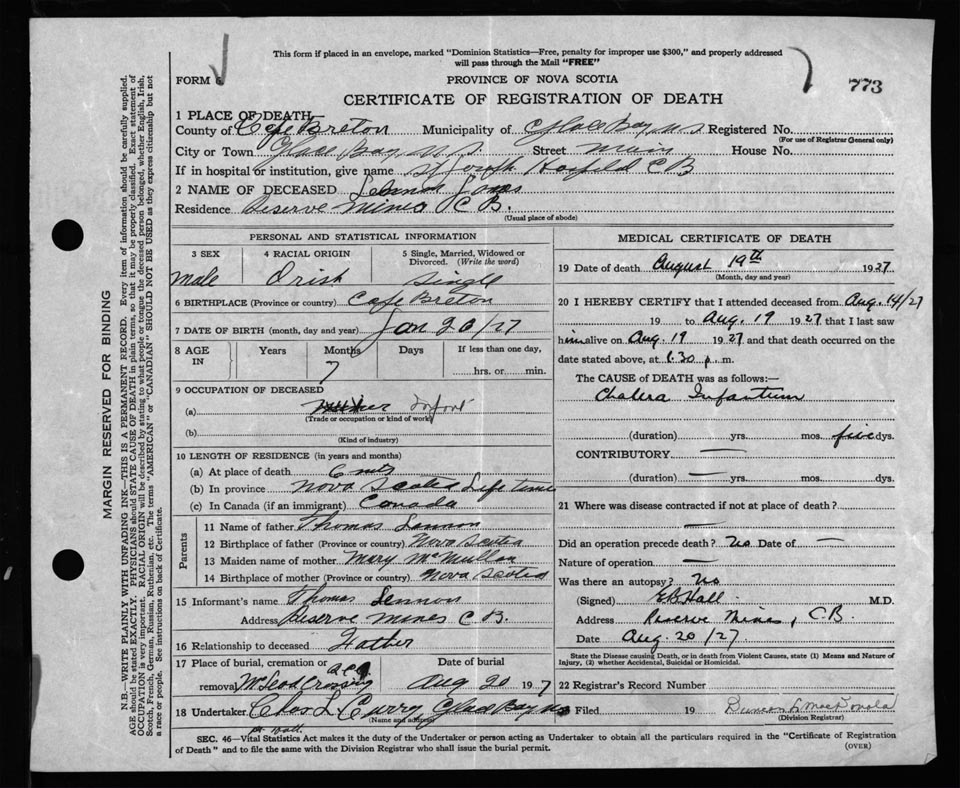 This form if placed in an envelope, marked "Dominion Statistics—Free, penalty for improper use $300," and properly addressed
will pass through the Mail "FREE"
FORM 6
PROVINCE OF NOVA SCOTIA
773
CERTIFICATE OF REGISTRATION OF DEATH
1 PLACE OF DEATH
County of Cape Breton Municipality of Glace Bay, N S Registered No.
(For use of Registrar General only)
City or Town Glace Bay, N. S. Street Main House No.
If in hospital or institution, give name St Joseph Hospital C B
2 NAME OF DECEASED Lennon
Residence Reserve Mines C B.
(Usual place of abode)
PERSONAL AND STATISTICAL INFORMATION
3 SEX
4 RACIAL ORIGIN
5 Single, Married, Widowed or Divorced. (Write the word)
male Irish Single
6 BIRTHPLACE (Province or country) Cape Breton
7 DATE OF BIRTH (month, day and year) Jan 20/27
8 AGE IN
Years Months Days If less than one day,
7 hrs. or min.
9 OCCUPATION OF DECEASED
(a) Infant
(Trade or occupation or kind of work)
(b)
(Kind of industry)
10 LENGTH OF RESIDENCE (in years and months)
(a) At place of death 6 mts
(b) In province Nova Scotia Life time
(c) In Canada (if an immigrant) Canada
Parents
11 Name of father Thomas Lennon
12 Birthplace of father (Province or country) Nova Scotia
13 Maiden name of mother Mary McMullan
14 Birthplace of mother (Province or country) Nova Scotia
15 Informant's name Thomas Lennon
Address Reserve Mines C B.
16 Relationship to deceased Father
17 Place of burial, cremation or removal McLeod Crossing
Date of burial
Aug 20 1927
18 Undertaker Chas L Curry, Glace Bay NS
(Name and address)
MEDICAL CERTIFICATE OF DEATH
19 Date of death August 19th 1927
(Month, day and year)
20 I HEREBY CERTIFY that I attended deceased from Aug. 14/27
19 to Aug. 19 1927 that I last saw
him alive on Aug. 19 1927 and that death occurred on the
date stated above, at 6.30 p. m.
The CAUSE of DEATH was as follows:—
Cholera Infantum
(duration) yrs. mos. five dys.
CONTRIBUTORY —
(duration) — yrs. mos. dys.
21 Where was disease contracted if not at place of death?
—
Did an operation precede death? No Date of —
Nature of operation —
Was there an autopsy? No
(Signed) E B Hall M.D.
Address Reserve Mines, C.B.
Date Aug. 20/27
State the Disease causing Death, or in death from Violent Causes, state (1) Means and Nature of
Injury, (2) whether Accidental, Suicidal or Homicidal.
22 Registrar's Record Number
Filed 19 Duncan MacDonald
(Division Registrar)
SEC. 46—Vital Statistics Act makes it the duty of the Undertaker or person acting as Undertaker to obtain all the particulars required in the "Certificate of Registration
of Death" and to file the same with the Division Registrar who shall issue the burial permit.
(OVER)
MARGIN RESERVED FOR BINDING
N.B.—WRITE PLAINLY WITH UNFADING INK—THIS IS A PERMANENT RECORD. Every item of information should be carefully supplied.
AGE should be stated EXACTLY. PHYSICIANS should STATE CAUSE OF DEATH in plain terms, so that it may be properly classified. Exact statement of
OCCUPATION is very important. RACIAL ORIGIN will be described by stating to what people or tongue the deceased person belonged, whether English, Irish,
Scotch, French, German, Russian, Ruthenian, etc. The terms "AMERICAN" or "CANADIAN" SHOULD NOT BE USED as they express citizenship but not
a race or people. See instructions on back of Certificate.